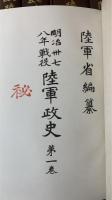 陸軍省編纂
明治卅七
八年戰役
陸軍政史
第一卷
秘